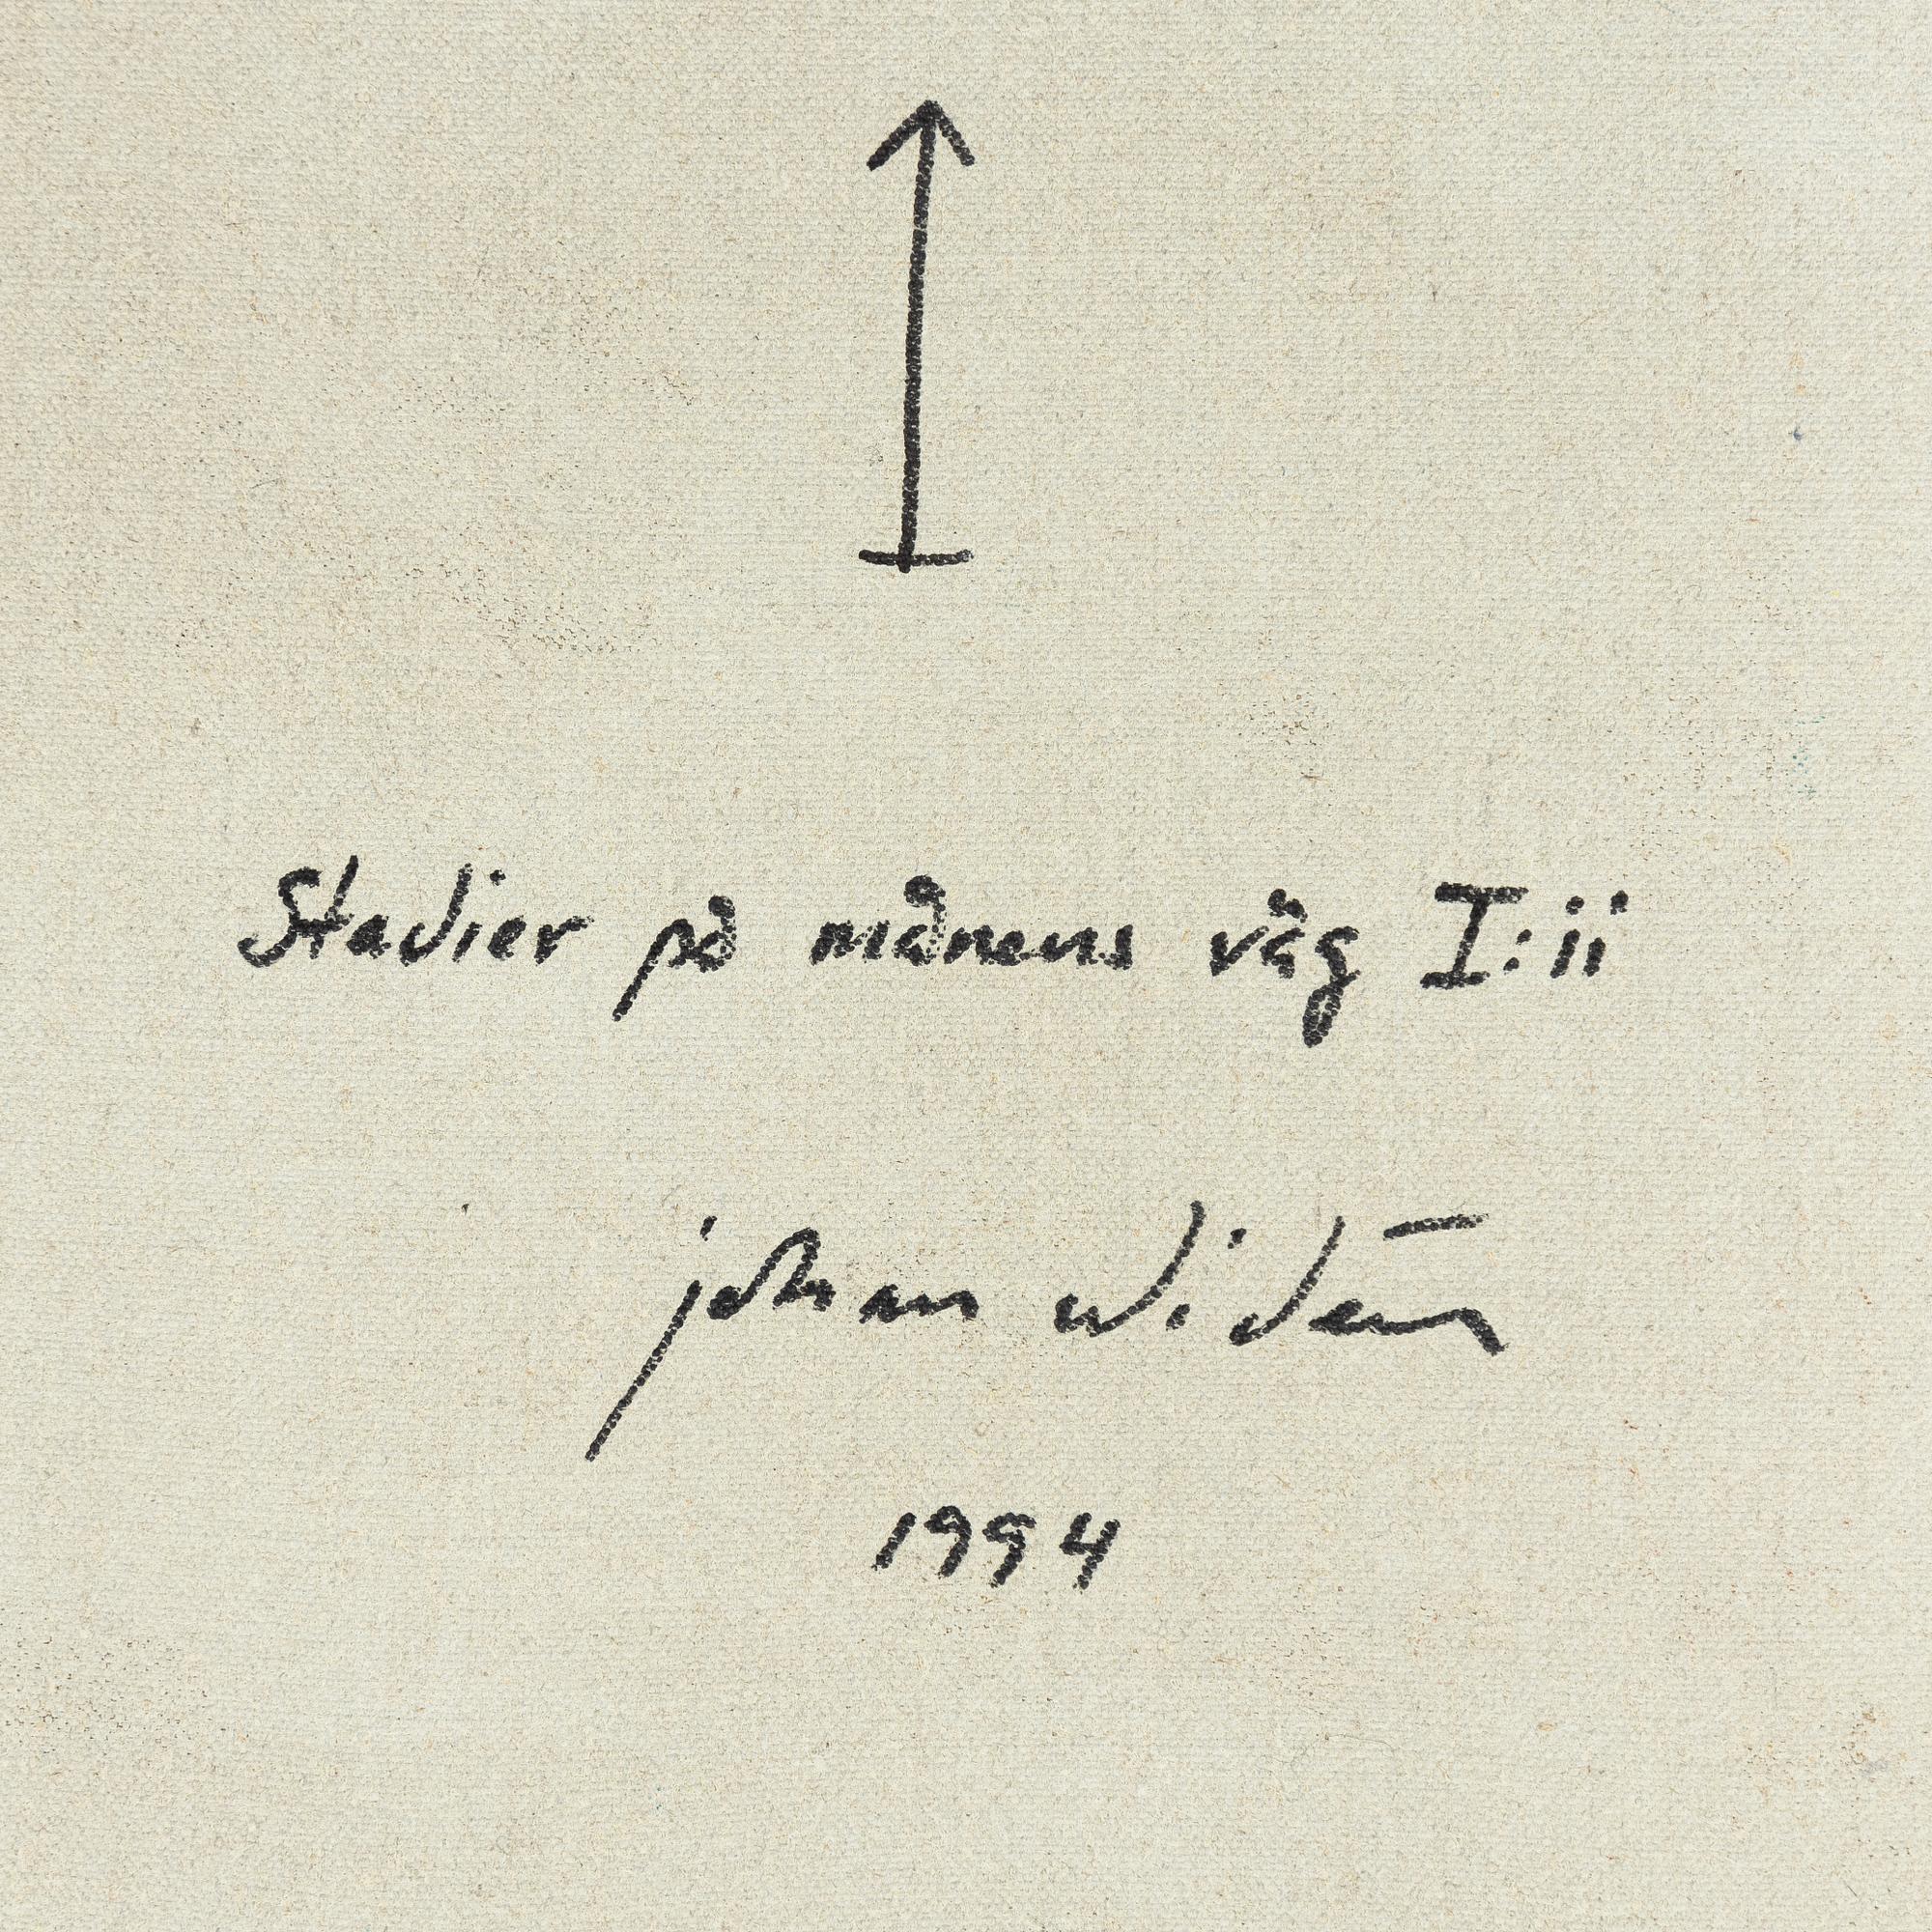 Stadier på månens väg I:ii
johan Widén
1994